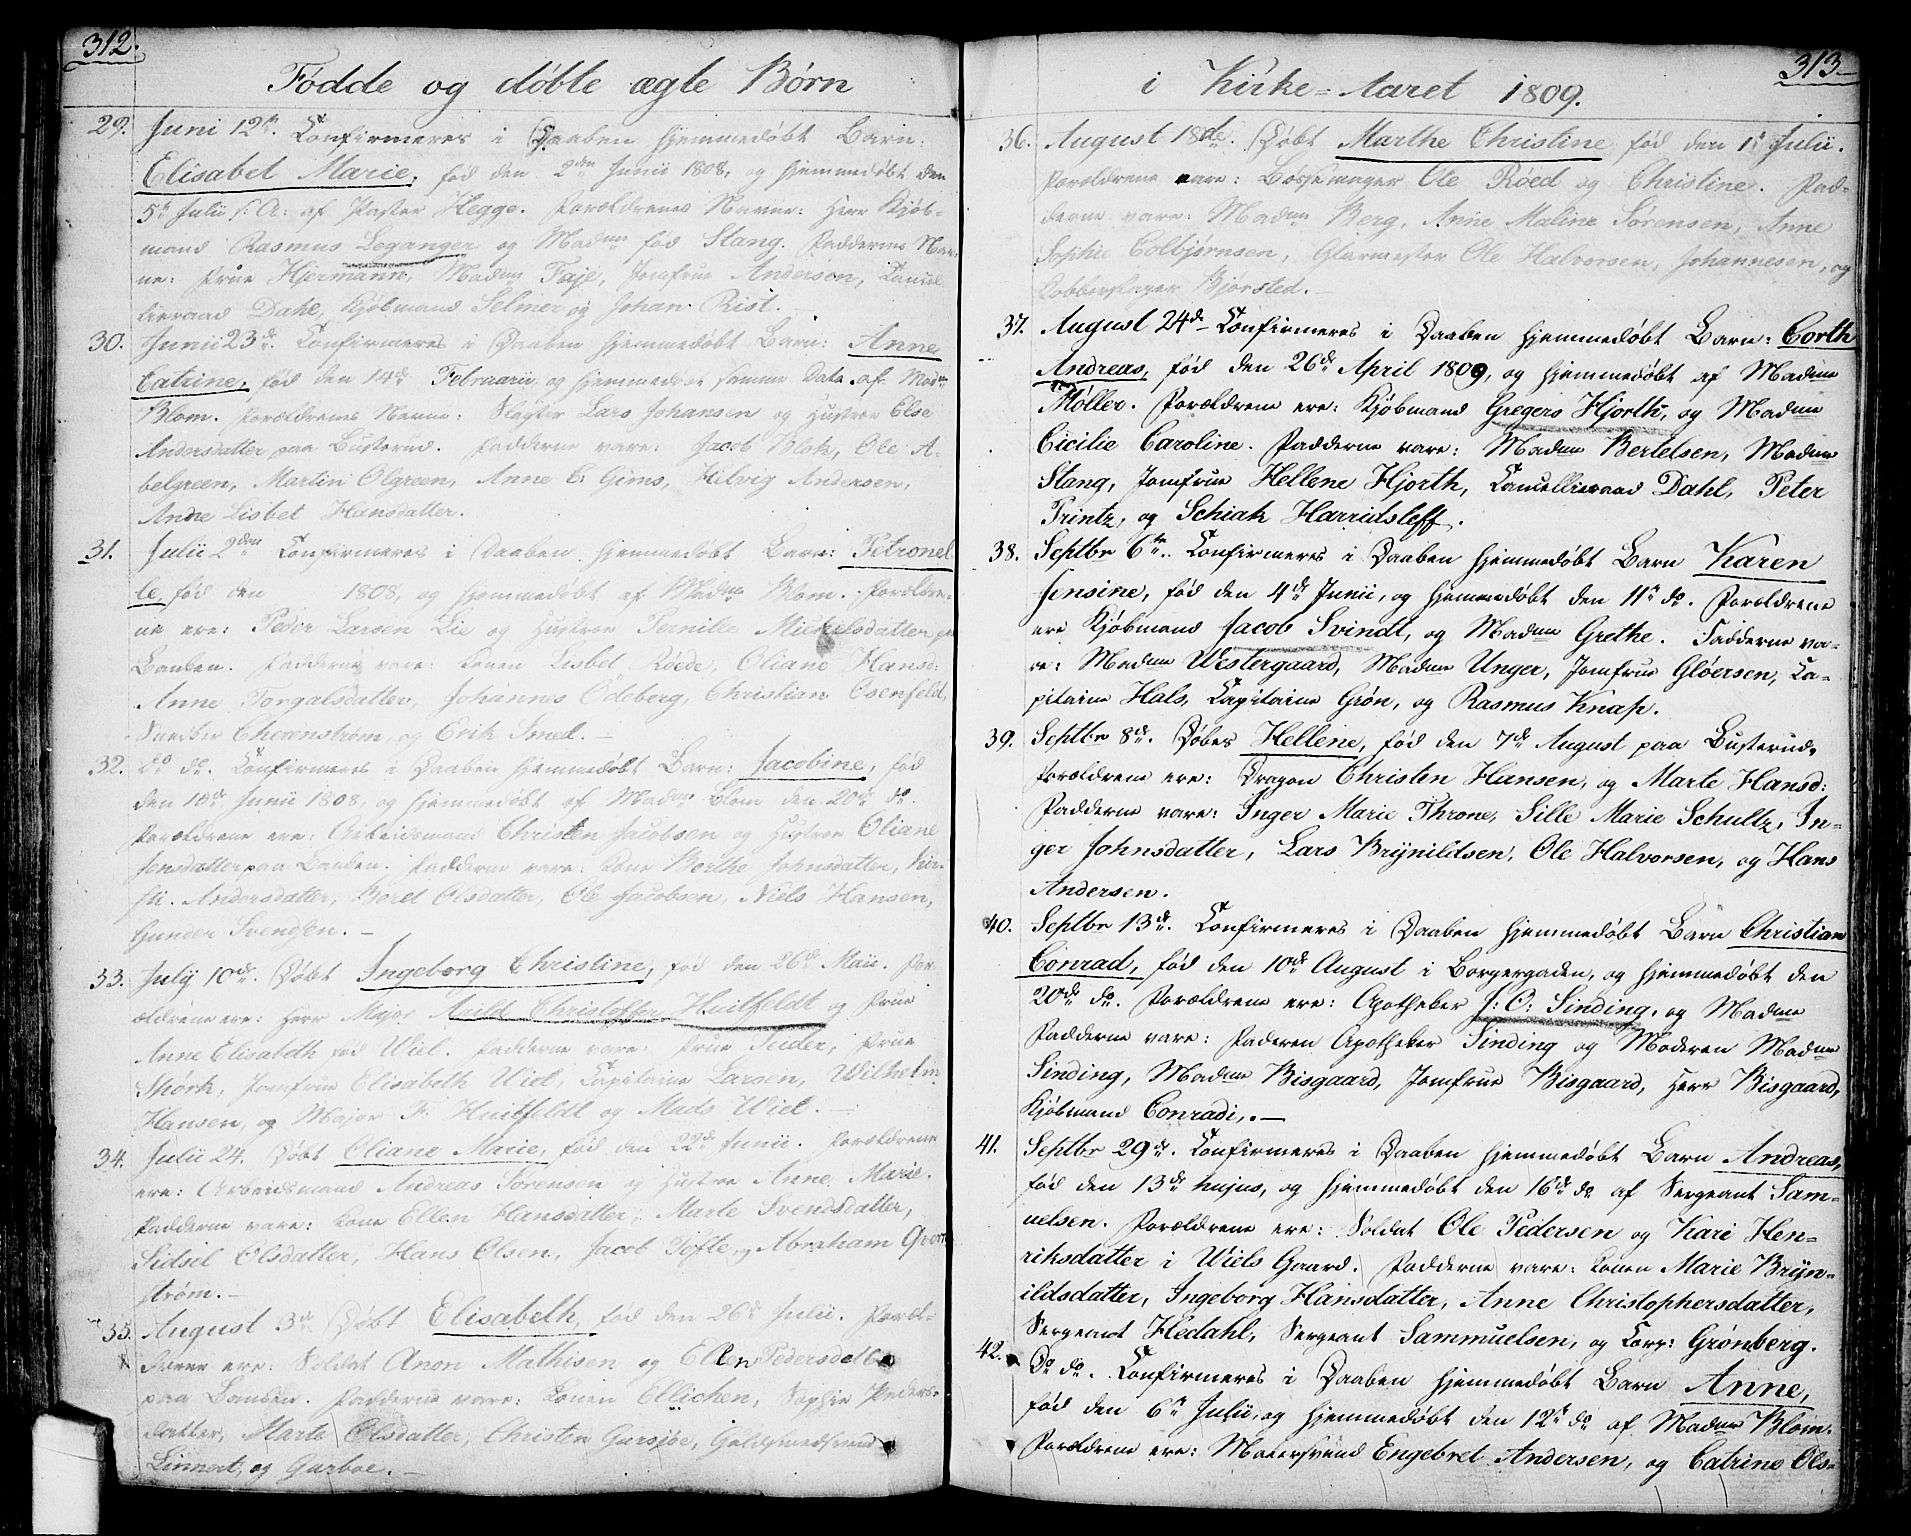 312.
Fødde og døbte ægte Børn
29. Junii 12te. Confirmeres i Daaben hjemmedøbt Barn:
Elisabet Marie, fød den 2den Junii 1808, og hjemmedøbt den
5te Julii s: A: af Pastor Hegge. Forældrenes Navne: Herr Kjøb-
mand Rasmus Loganger og Madme fød Stang. Faddernes Nav-
ne: Frue Hjermann, Madme Faje, Jomfrue Anderson, Cancel
lieraad Dahl, Kjøbmand Selmer og Johan Rist.
30. Junii 23de. Confirmeres i Daaben hjemmedøbt Barn: Anne
Catrine, fød den 14de Februarii, og hjemmedøbt samme Dato af Madme
Blom. Forældrenes Navne: Slagter Lars Johansen og Hustroe Else
Andersdatter paa Busterud. Fadderne vare: Jacob Blok, Ole A-
belgreen, Martin Olgreen, Anne C: Gims, Helvig Andersen,
Anne Lisbet Hansdatter.
31. Julii 2den Confirmeres i Daaben hjemmedøbt Barn: Petronel
le, fød den 1808, og hjemmedøbt af Madme Blom. Forældre-
ne ere: Peder Larsen Lie og Hustroe Pernille Michelsdatter paa
Banken. Fadderne vare: Konen Lisbet Røede, Oliane Hansd:
Anne Torgalsdatter, Johannes Odeberg, Christian Osenfeld,
Snedker Cheanstrøm, og Erik Smed.
32. do do. Confirmeres i Daaben hjemmedøbt Barn: Jacobine, fød
den 18de Junii 1808, og hjemmedøbt af Madme Blom den 20de do.
Forældrene ere: Arbeidsmand Christen Jacobsen og Hustroe Oliane
Jonsdatter paa Banken. Fadderne vare: Kone Berthe Johnsdatter, Kir-
sti Andersdatter, Beret Olsdatter, Ole Jacobsen, Niels Hansen,
Gunder Svendsen.
33. July 10de. Døbt Ingeborg Christine, fød den 26de Maii. For
ældrene ere: Herr Major Christoffer Huitfeldt og Frue
Anne Elisabeth fød Wiel. Fadderne vare: Frue Feider, Frue
Spørk, Jomfrue Elisabeth Wiel, Capitaine Larsen, Wilhelm
Hansen, og Major F. Huitfeldt og Mads Wiel.
34. Julii 24. Døbt Oliane Marie, fød den 22de Junii. Forældrene
ere: Arbeidsmand Andreas Sørensen og Hustroe Anne Marie.
Fadderne vare: Kone Ellen Hansdatter, Marte Svendsdatter,
Sidsel Olsdatter, Hans Olsen, Jacob Tofte og Abraham Qvorn
strøm.
35. August 3de Døbt Elisabeth, fød den 26de Julii. Foræl-
drene ere: Soldat Anon Mathisen og Ellen Pedersdatter
paa Banken. Fadderne vare: Konen Ellichen, Sophie Peders-
datter, Marte Olsdatter, Christen Gursjøe, Guldsmedsvend
Linnert, og Garboe.
313
i Kirke-Aaret 1809.
36. August 18de. Døbt Marthe Christine fød den 1te Julii.
Forældrene vare: Bøssemager Ole Røed og Christine. Fad-
derne vare: Madme Berg, Anne Maline Sørensen, Anne
Sophie Colbjørnsen, Glarmester Ole Halvorsen, Johannesen, og
Kobberslager Bjorsted.
37. August 24de Confirmeres i Daaben hjemmedøbt Barn: Corth
Andreas, fød den 26de April 1809, og hjemmedøbt af Madme
Møller. Forældrene ere: Kjøbmand Gregers Hjorth, og Madme
Cicilie Caroline. Fadderne vare: Madme Bertelsen, Madme
Stang, Jomfrue Hellene Hjorth, Cancellieraad Dahl, Peter
Trintz, og Schiak Harridsleff.
38. Septbr 6te. Confirmeres i Daaben hjemmedøbt Barn Karen
Jensine, fød den 4de Junii, og hjemmedøbt den 11te do. Forældrene
ere Kjøbmand Jacob Svindt, og Madme Grethe. Fadderne va-
re: Madme Westergaard, Madme Unger, Jomfrue Gløersen, Ca-
pitaine Hals, Capitaine Grøn, og Rasmus Knap.
39. Septbr 8de. Døbes Hellene, fød den 7de August paa Busterud.
Forældrene ere: Dragon Christen Hansen, og Marte Hansd:
Fadderne vare: Inger Marie Throne, Sille Marie Schultz, In-
ger Johnsdatter, Lars Brynildsen, Ole Halvorsen, og Hans
Andersen.
40. Septbr 13de. Confirmeres i Daaben hjemmedøbt Barn Christian
Conrad, fød den 10de August i Borgergaden, og hjemmedøbt den
20de do. Forældrene ere: Apotheker J: O: Sinding, og Madme
Fadderne vare: Faderen Apotheker Sinding og Moderen Madme
Sinding, Madme Bisgaard, Jomfrue Bisgaard, Herr Bisgaard,
Kjøbmand Conradi,.
41. Septbr 29de. Confirmeres i Daaben hjemmedøbt Barn Andreas,
fød den 13de hujus, og hjemmedøbt den 16de do af Sergeant Sam-
uelsen. Forældrene ere: Soldat Ole Pedersen og Kari Hen-
riksdatter i Wiels Gaard. Fadderne vare: Konen Marie Bryn-
ildsdatter, Ingeborg Hansdatter, Anne Christophersdatter,
Sergeant Hedahl, Sergeant Sammuelsen, og Corp: Grønberg.
42. Do do. Confirmeres i Daaben hjemmedøbt Barn Anne,
fød den 6te Julii, og hjemmedøbt den 12te do af Madme Blom.
Forældrene ere: Muursvend Engebret Andersen, og Catrine Ols-